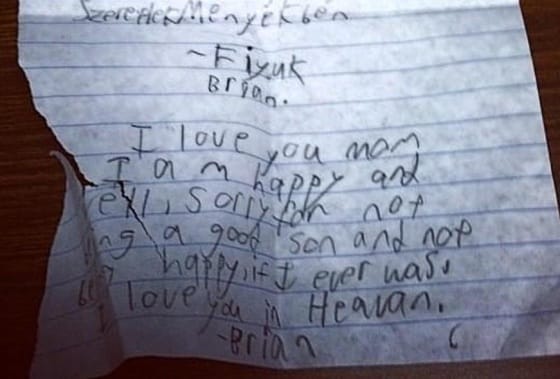 Szeretlek Menyékbén
~Fiyuk
Brian.
I love you mom
I am happy and
ell, sorry for not
ng a good son and not
happy, if I ever was.
I love you in Heavan.
-Brian